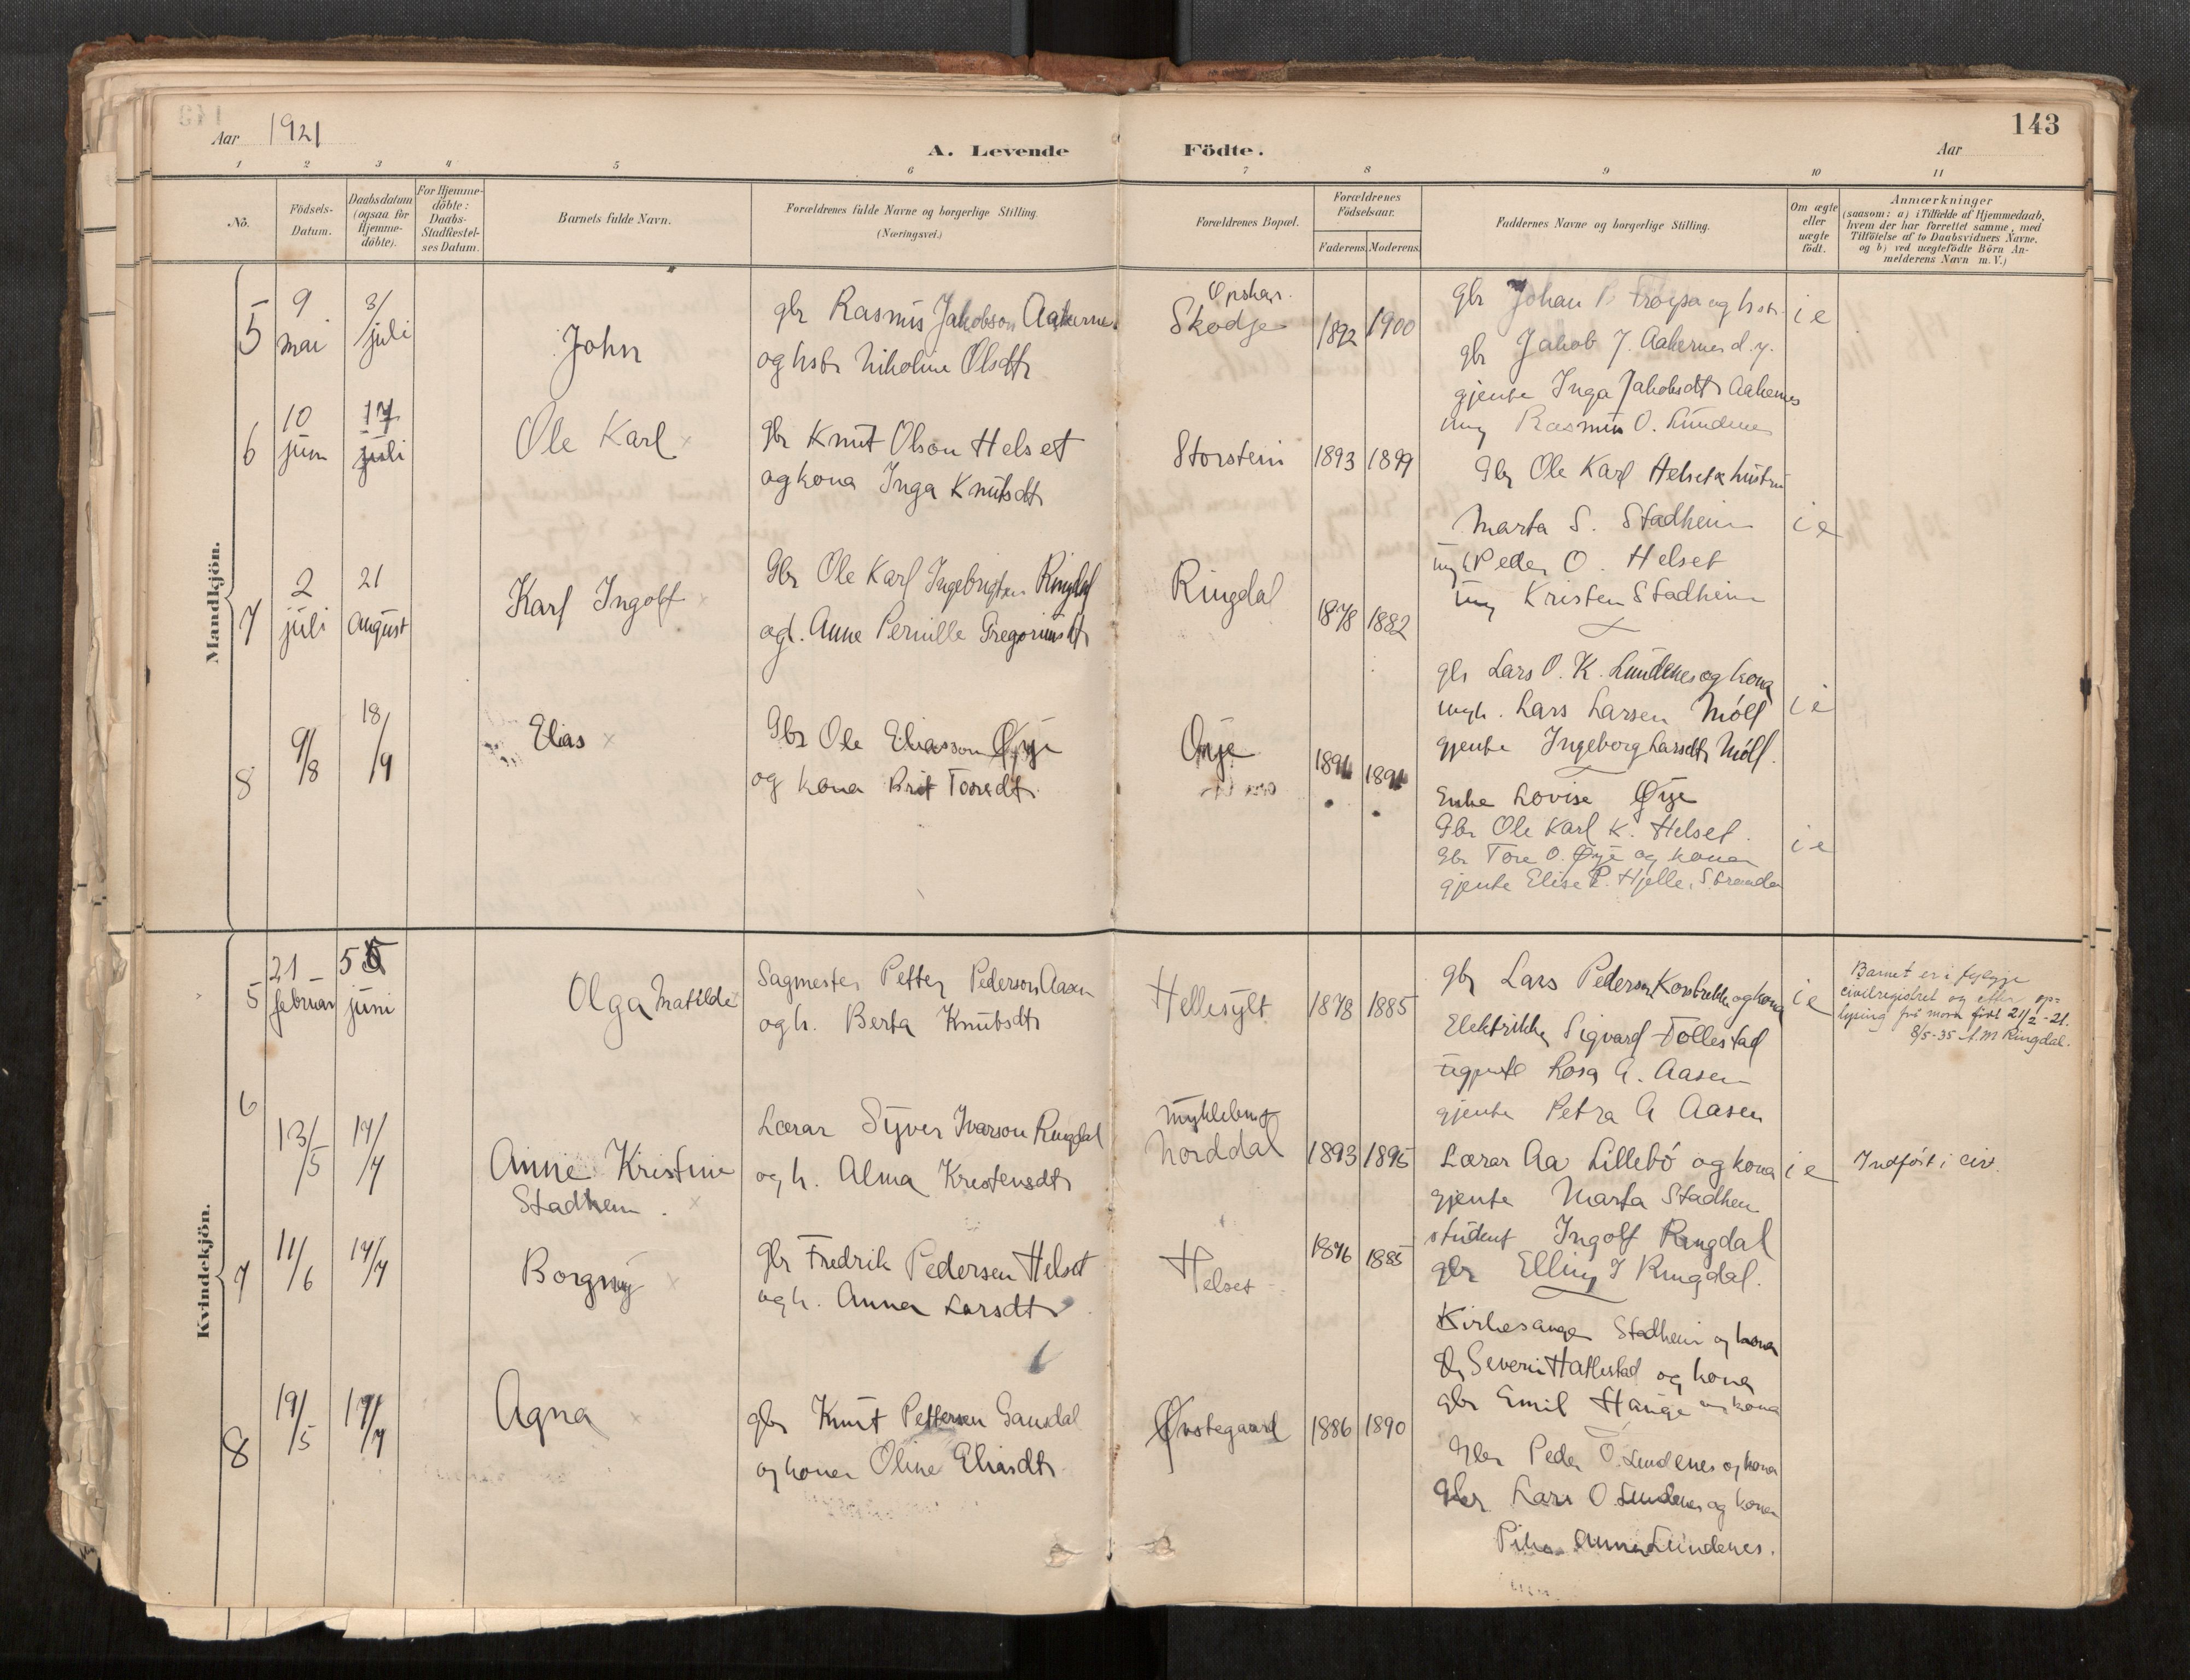 143
Aar 1921
A. Levende Födte.
Aar
1 2 3 4 5 6 7 8 9 10 11
No.
Födsels-Datum.
Daabsdatum (ogsaa for Hjemme-döbte).
For Hjemme-döbte: Daabs-Stadfæstel-ses Datum.
Barnets fulde Navn.
Forældrenes fulde Navne og borgerlige Stilling.
(Næringsvei.)
Forældrenes Bopæl.
Forældrenes Födselsaar.
Faderens. Moderens.
Faddernes Navne og borgerlige Stilling.
Om ægte eller uægte födt.
Anmærkninger
(saasom: a) i Tilfælde af Hjemmedaab,
hvem der har forrettet samme, med
Tilföielse af to Daabsvidners Navne,
og b) ved uægtefödte Börn An-
melderens Navn m.V.)
Mandkjön.
5
9 mai
3/ juli
John
gbr Rasmus Jakobson Aakernes
og hstr Nikoline Olsdtr
Skodje
1892 1900
gbr Johan
gbr Jakob J. Aakernes d.y.
gjente Inga Jakobsdtr Aakernes
ung Rasmus O. Lundenes
i e
6
10 juni
17 juli
Ole Karl x
gbr Knut Olson Helset
og kona Inga Knutsdtr
Storstein
1893 1899
Gbr Ole Karl Helset & hustru
Marta S. Stadheim
Peder O. Helset
ung Kristen Stadheim
i e
7
2 juli
21 August
Karl Ingolf x
Gbr Ole Karl Ingebrigtsn Ringdal
og h. Anne Pernille Gregoriusdt
Ringdal
1878 1882
gbr Lars O. K. Lundenes og kona
ungk. Lars Larsen Möll
gjente Ingeborg Larsdtr Möll.
i e
8
9/8
18/9
Elias x
Gbr Ole Eliasson Øye
og kona Brit Toresdtr.
Øye
1891 1891
Enke Lovise Øye
Gbr Ole Karl K. Helset.
Gbr Tore O. Øye og konen
gjente Elise P. Hjelle, Stranden
i e
Kvindekjön.
5
21 februar
5 juni
Olga Matilde
Sagmester Petter Pederson Aasen
og h. Berta Knutsdtr
Hellesylt
1878 1885
gbr Lars Pederson Korsbrekke og kona
Elektriker Sigvard Tollestad
Rosa A. Aasen
gjente Petra A Aasen
i e
Barnet er i fylgje
civilregistret og efter op=
lysing frå mora födt 21/2-21.
8/5-35 A.M Ringdal.
6
13/5
17/7
Anne Kristine
Stadheim. x
Lærar Syver Ivarson Ringdal
og h. Alma Kristensdtr
Myklebust
Norddal
1893 1895
Lærar Aa Lillebö og kona
gjente Marta Stadheim
student Ingolf Ringdal
gbr Elling I Ringdal.
i e
Indfört i civ.
7
11/6
17/7
Borgny x
gbr Fredrik Pedersen Helset
og h. Anna Larsdtr
Helset
1876 1885
Kirkesanger Stadheim og kona
Severin Hatlestad og kona
gbr Emil Hauge og kona
8
19/5
17/7
Agna x
gbr Knut Pettersen Gausdal
og konen Oline Eliasdtr
Øvstegaard
1886 1890
Gbr Peder O. Lundenes og kona
Gbr Lars O. Lundenes og konen
Pike Anna Lundenes.